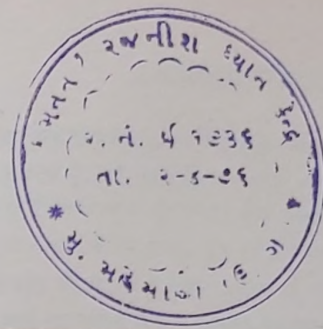 'મનન' રજનીશ ધ્યાન કેન્દ્ર
ર. નં. ઈ ૧૭૩૬
તા. ૨-૬-૭૬
મુ. મહેસાણા (ઉ. ગુ.)